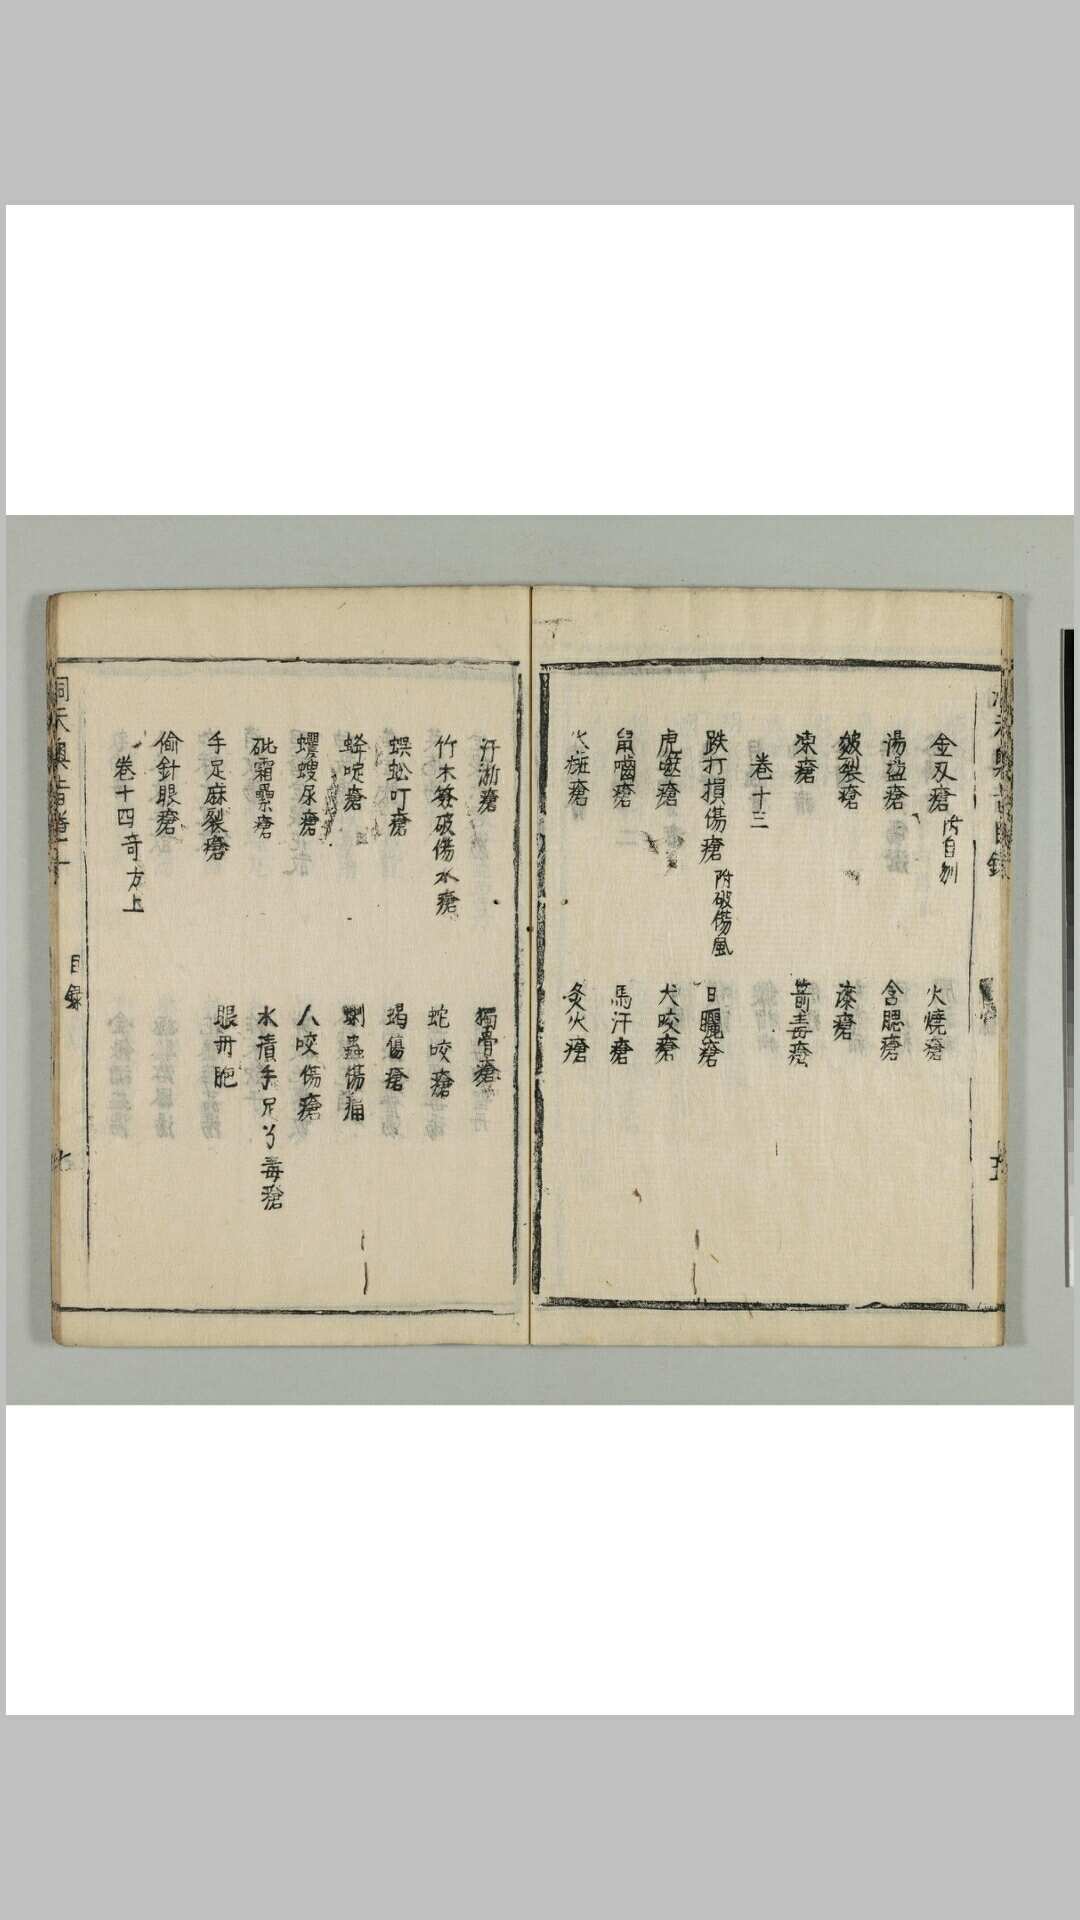 金刄瘡
火燒瘡
湯盪瘡
含腮瘡
皴裂瘡
漆瘡
凍瘡
箭毒瘡
卷十三
跌打損傷瘡 附破傷風
日曬瘡
虎噬瘡
犬咬瘡
鼠嚙瘡
馬汗瘡
火斑瘡
灸火瘡
汗淅瘡
獨骨瘡
竹木簽破傷水瘡
蛇咬瘡
蜈蚣叮瘡
蝎傷瘡
蜂啶瘡
人咬傷瘡
蠼螋尿瘡
砒霜纍瘡
水漬手足丫毒瘡
手足麻裂瘡
眼丹胞
偷針眼瘡
卷十四奇方上
洞天奧旨卷十
目録